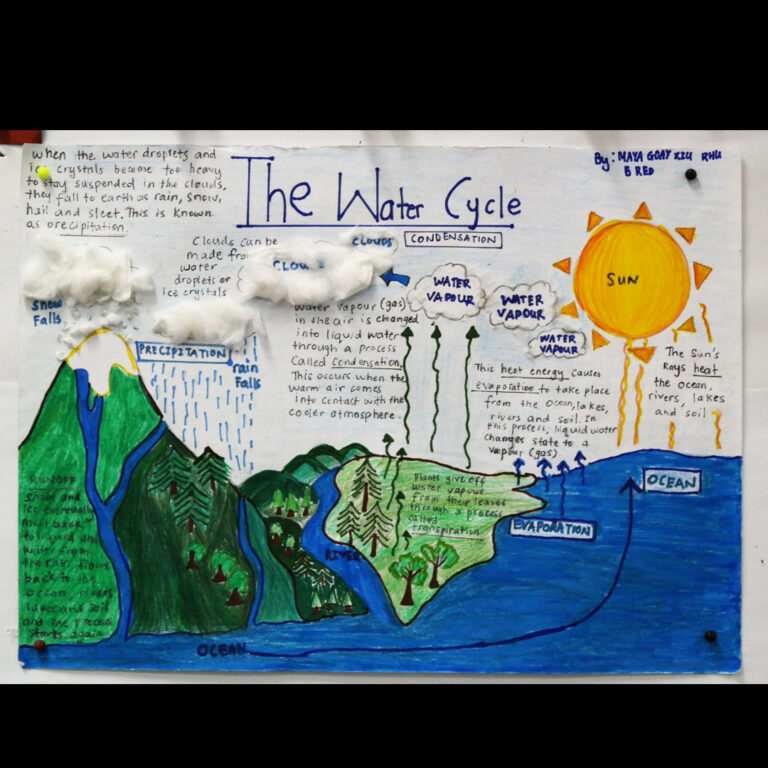 when the water droplets and
ice crystals become too heavy
to stay suspended in the clouds,
they fall to earth as rain, snow,
hail and sleet. This is known
as precipitation.
The Water Cycle
By: MAYA GOAY XIU RHU
B RED
Clouds can be
made from
water
droplets or
ice crystals
CLOUDS
CLOU
CONDENSATION
WATER
VAPOUR
WATER
VAPOUR
WATER
VAPOUR
SUN
Snow
Falls
PRECIPITATION
rain
Falls
Water vapour (gas)
in the air is changed
into liquid water
through a process
Called condensation.
This occurs when the
warm air comes
into contact with the
cooler atmosphere.
This heat energy causes
evaporation to take place
from the ocean, lakes,
rivers and soil. In
this process, liquid water
changes state to a
vapour (gas)
The Sun's
Rays heat
the ocean,
rivers, lakes
and soil
RUNOFF
Snow and
ice eventually
melt back
to liquid and
water from
the rain flows
back to the
ocean, rivers
lakes and soil
and the process
starts again
Plants give off
water vapour
from their leaves
through a process
called
transpiration
EVAPORATION
OCEAN
RIVER
OCEAN